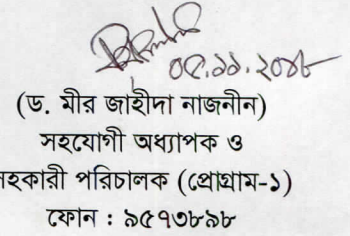 ০৫.১১.২০১৮
(ড. মীর জাহীদা নাজনীন)
সহযোগী অধ্যাপক ও
সহকারী পরিচালক (প্রোগ্রাম-১)
ফোন : ৯৫৭৩৮৯৮